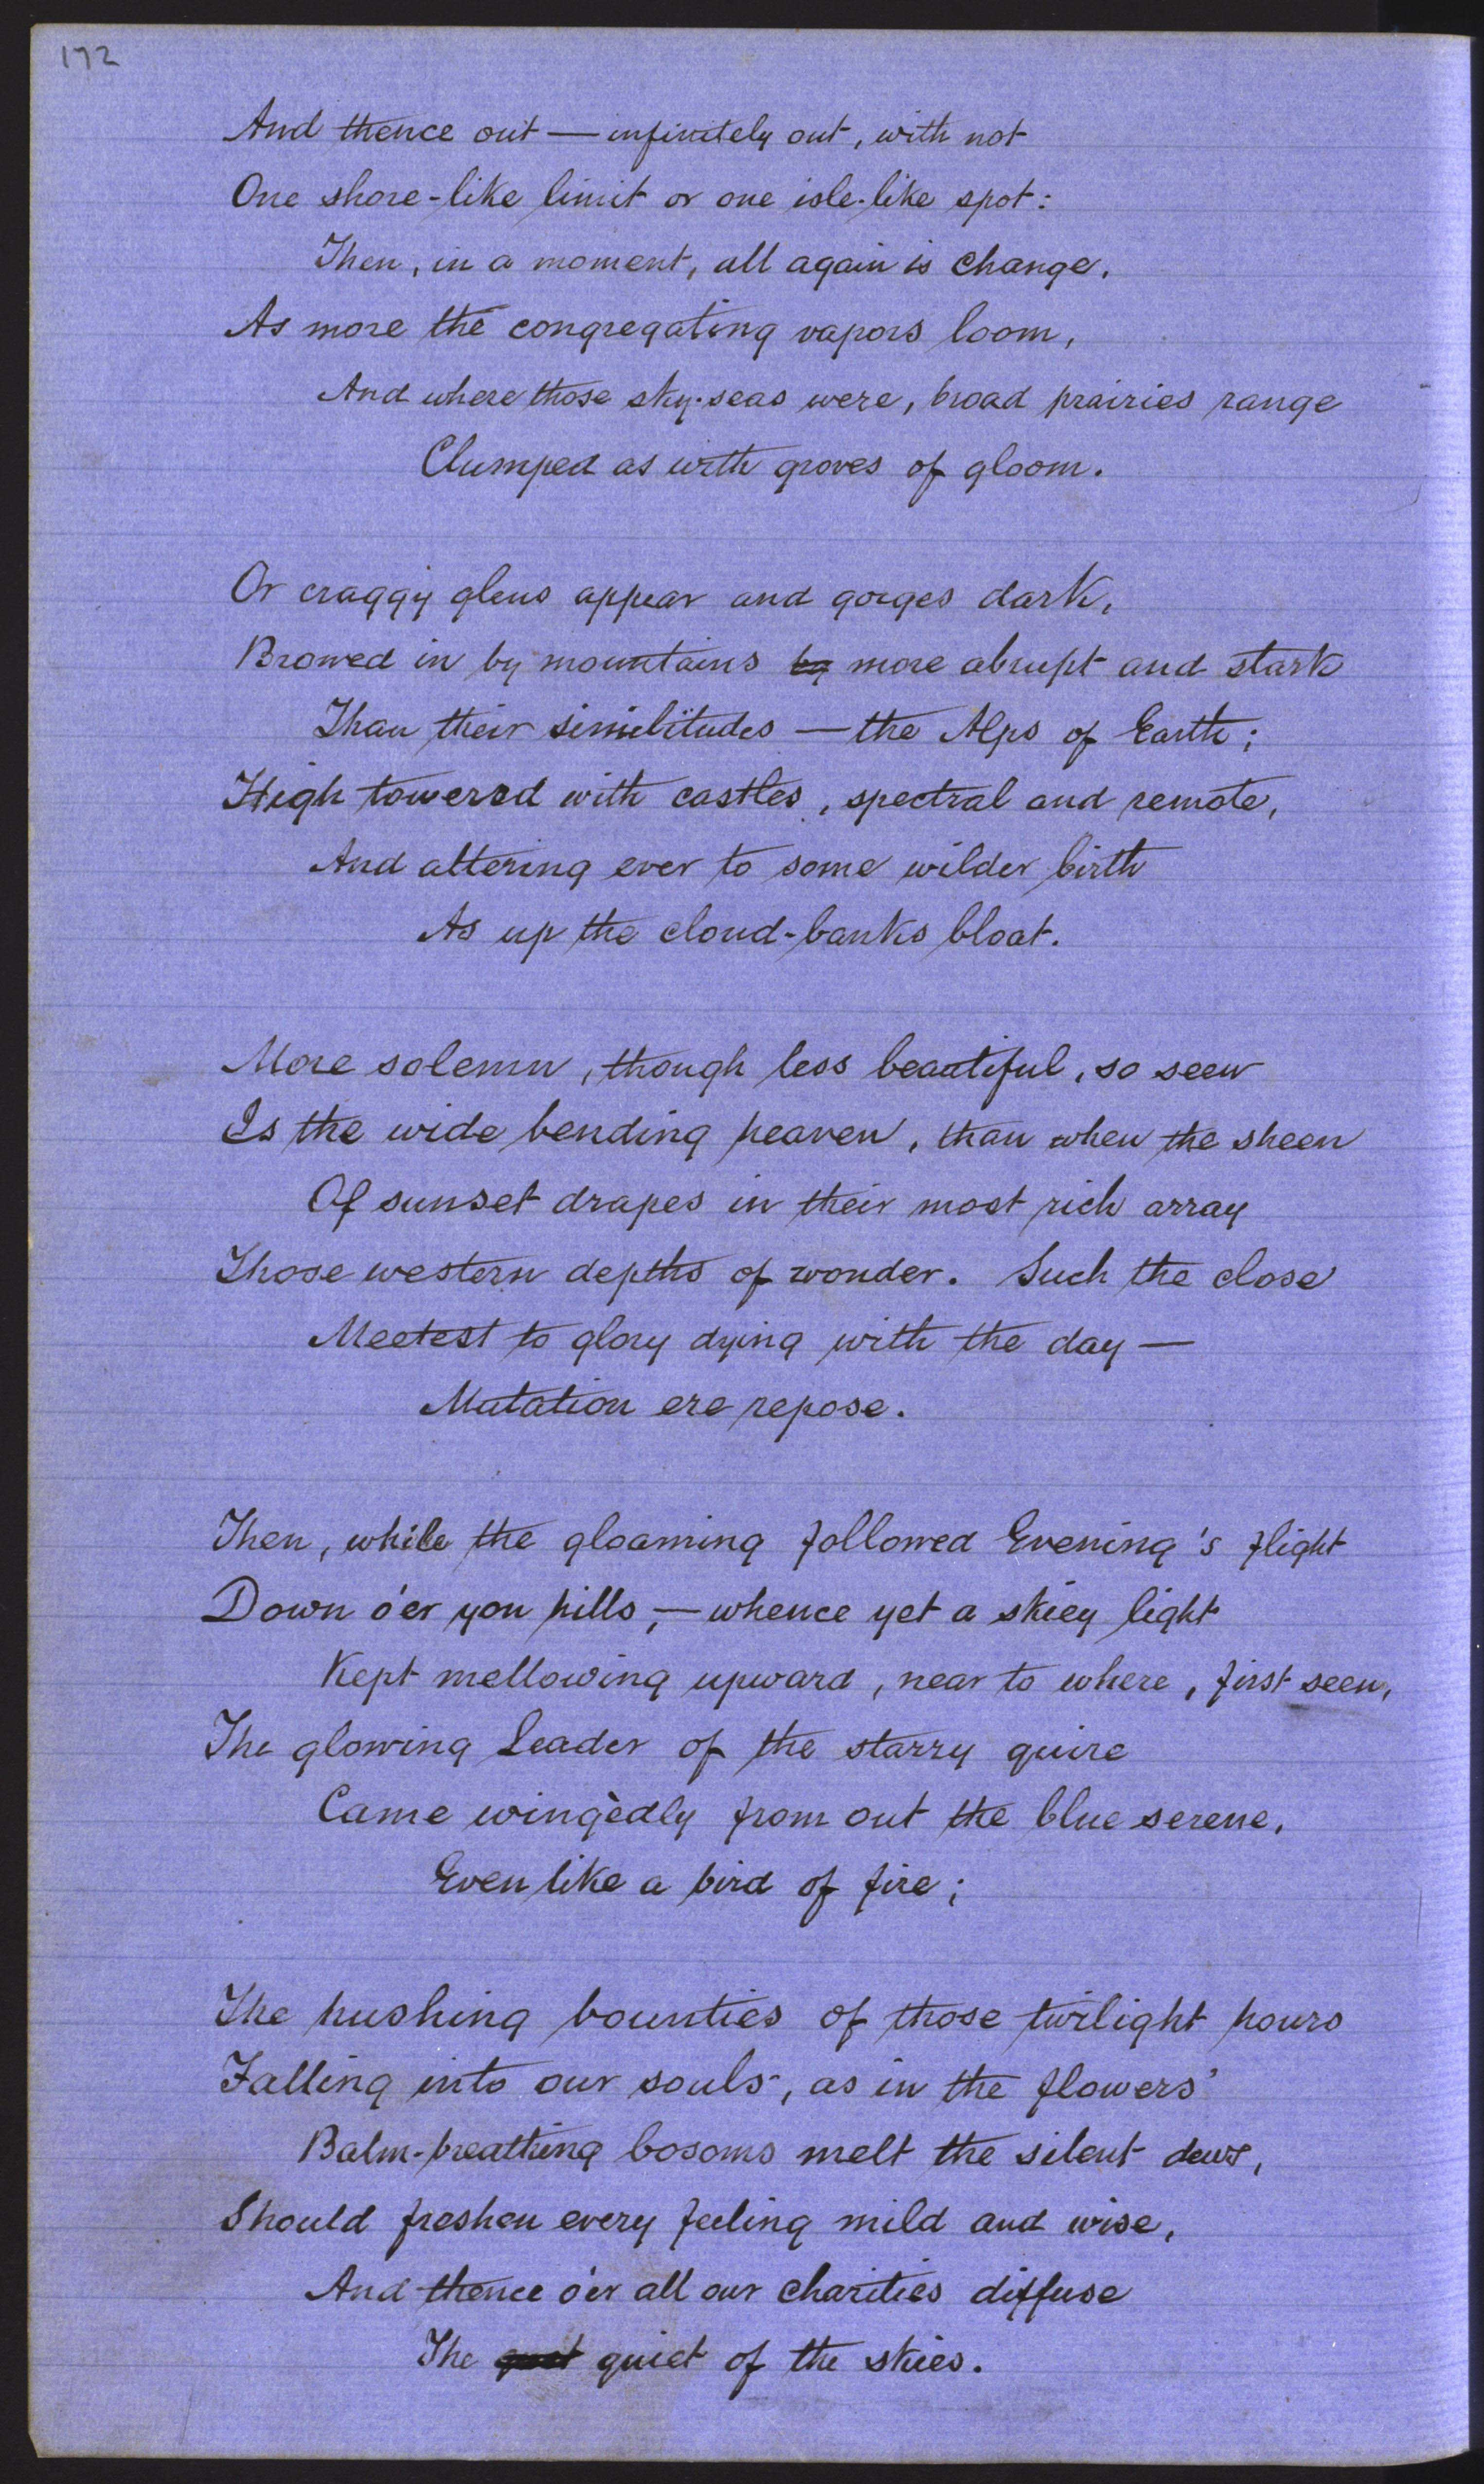 172
And thence out — infinitely out, with not
One shore-like limit or one isle-like spot:
Then, in a moment, all again is change,
As more the congregating vapors loom,
And where those sky-seas were, broad prairies range
Clumped as with groves of gloom.
Or craggy glens appear and gorges dark,
Browed in by mountains by more abrupt and stark
Than their similitudes — the Alps of Earth;
High towered with castles, spectral and remote,
And altering ever to some wilder birth
As up the cloud-banks bloat.
More solemn, though less beautiful, so seen
Is the wide bending heaven, than when the sheen
Of sunset drapes in their most rich array
Those western depths of wonder. Such the close
Meetest to glory dying with the day —
Mutation ere repose.
Then, while the gloaming followed Evening's flight
Down o'er yon hills, — whence yet a skiey light
Kept mellowing upward, near to where, first seen,
The glowing Leader of the starry quire
Came wingèdly from out the blue serene,
Even like a bird of fire;
The hushing bounties of those twilight hours
Falling into our souls, as in the flowers'
Balm-breathing bosoms melt the silent dews,
Should freshen every feeling mild and wise,
And thence o'er all our charities diffuse
The quiet of the skies.